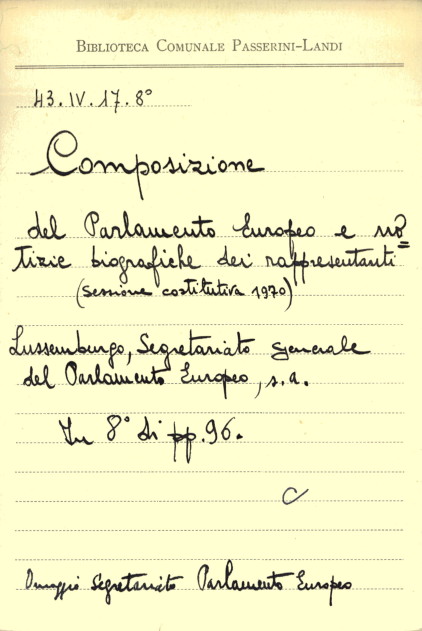 BIBLIOTECA COMUNALE PASSERINI-LANDI
43.IV.17.8°
Composizione
del Parlamento Europeo e no=
tizie biografiche dei rappresentanti
(sessione costitutiva 1970)
Lussemburgo, Segretariato generale
del Parlamento Europeo, s.a.
In 8° di pp. 96.
C
Omaggio Segretariato Parlamento Europeo